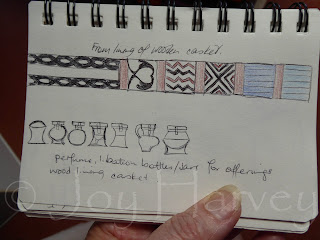 From lining of wooden casket.
perfume, libation bottles/jars for offerings
wood lining casket
© Joy Harvey